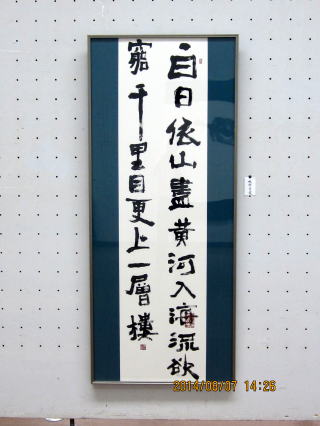 白日依山盡黄河入海流欲
窮千里目更上一層樓
2014/08/07 14:26